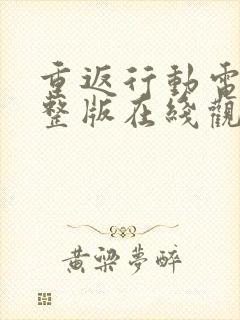 重返行動電
整版在綫觀
黄梁夢醉